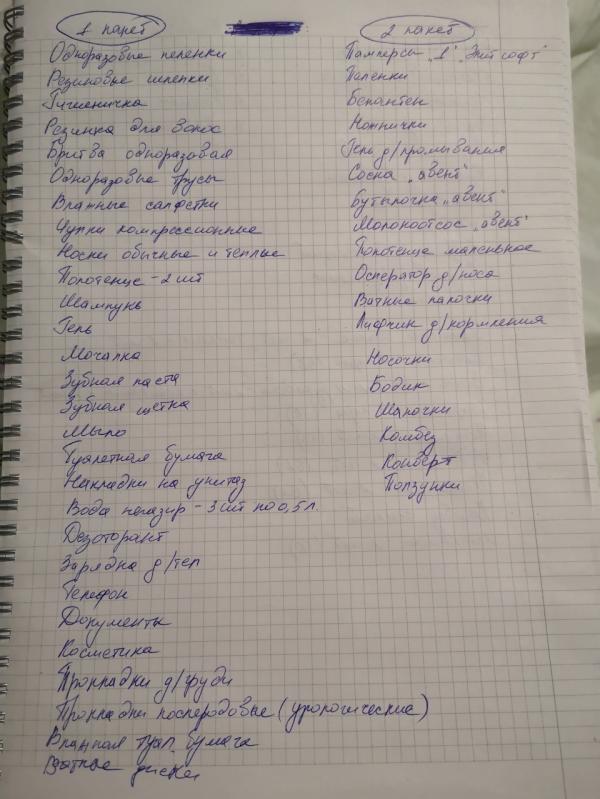 1 пакет
Одноразовые пеленки
Резиновые шлепки
Гигиеничка
Резинка для волос
Бритва одноразовая
Одноразовые трусы
Влажные салфетки
Чулки компрессионные
Носки обычные и теплые
Полотенце - 2 шт
Шампунь
Гель
Мочалка
Зубная паста
Зубная щетка
Мыло
Туалетная бумага
Накладки на унитаз
Вода негазир - 3 шт по 0,5 л.
Дезоторант
Зарядка д/тел
Телефон
Документы
Косметика
Прокладки д/груди
Прокладки послеродовые (урологические)
Влажная туал. бумага
Ватные диски
2 пакет
Памперсы "1" "Элит софт"
Пеленки
Бепантен
Ножнички
Гель д/промывания
Соска "авент"
Бутылочка "авент"
Молокоотсос "авент"
Полотенце маленькое
Осператор д/носа
Ватные палочки
Лифчик д/кормления
Носочки
Бодик
Шапочки
Комбез
Конверт
Ползунки